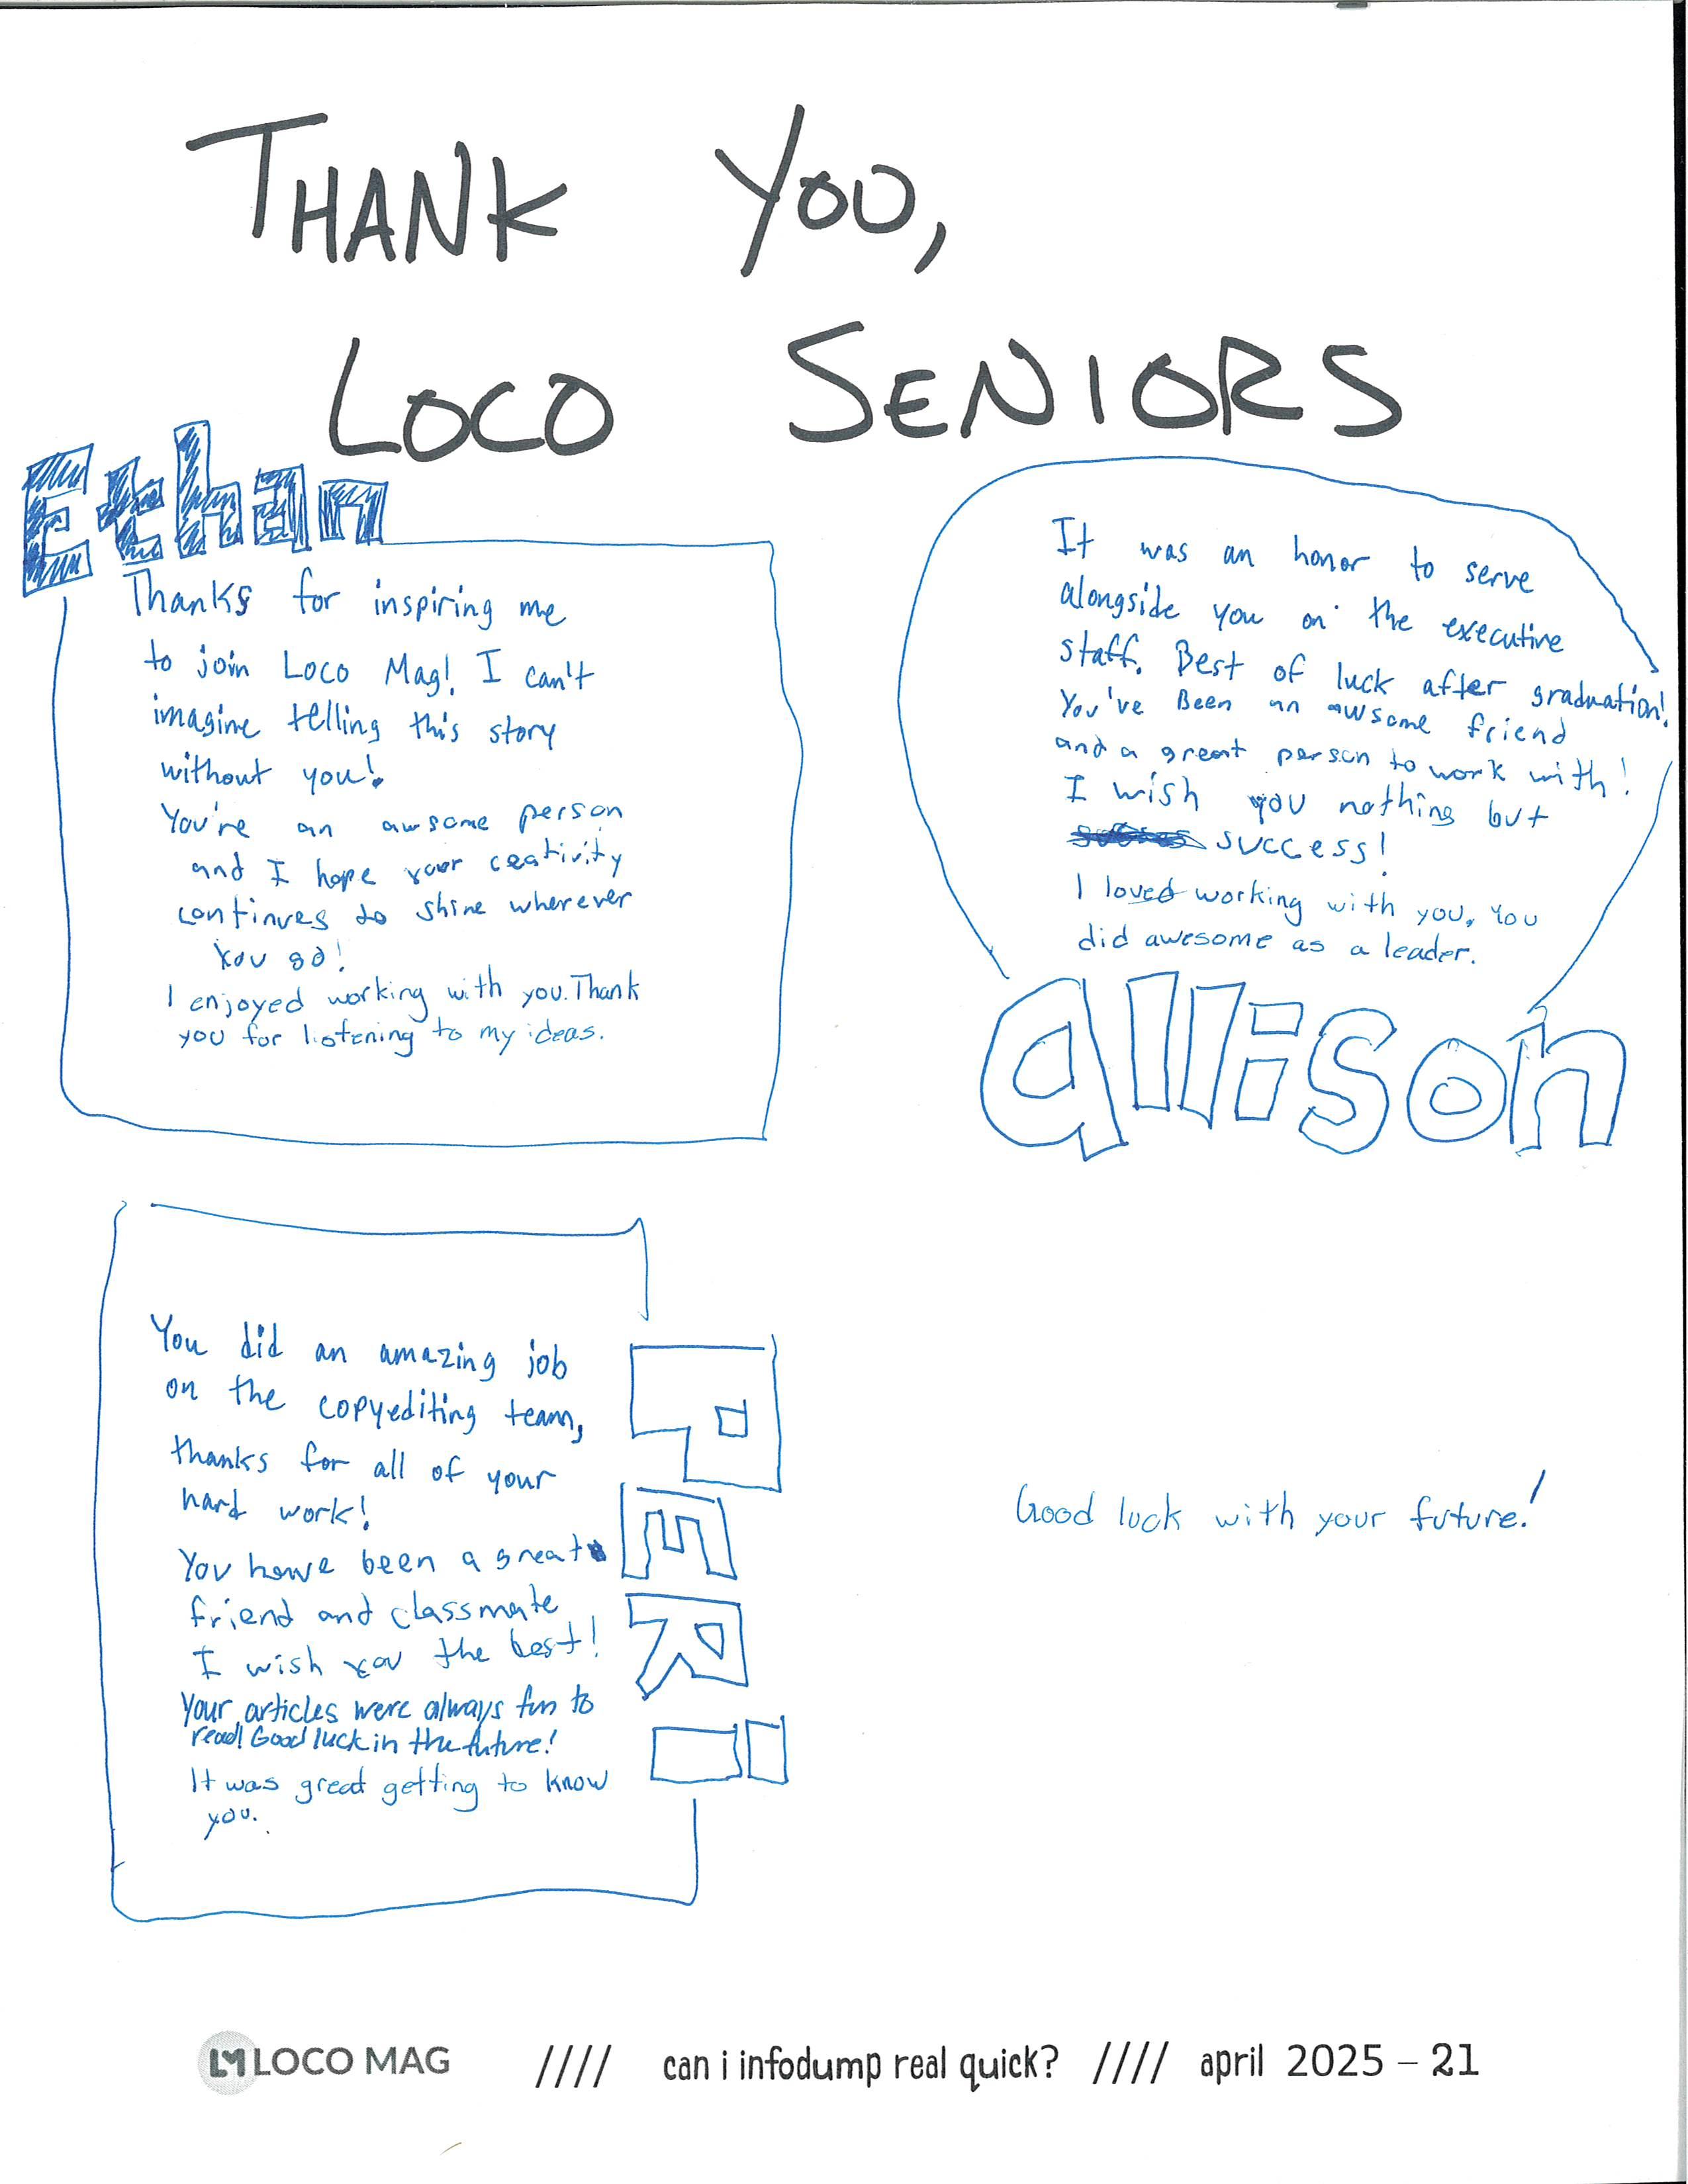 THANK YOU,
LOCO SENIORS
Ethan
Thanks for inspiring me
to join Loco Mag! I can't
imagine telling this story
without you!
You're an awsome person
and I hope your ceativity
continues to shine wherever
you go!
I enjoyed working with you. Thank
you for listening to my ideas.
It was an honor to serve
alongside you on the executive
staff. Best of luck after graduation!
You've Been an awsome friend
and a great person to work with!
I wish you nothing but
success!
I loved working with you. You
did awesome as a leader.
allison
You did an amazing job
on the copyediting team,
thanks for all of your
hard work!
You have been a great
friend and classmate
I wish you the best!
Your articles were always fun to
read! Good luck in the future!
It was great getting to know
you.
PERI
Good luck with your future!
LM LOCO MAG //// can i infodump real quick? //// april 2025 – 21